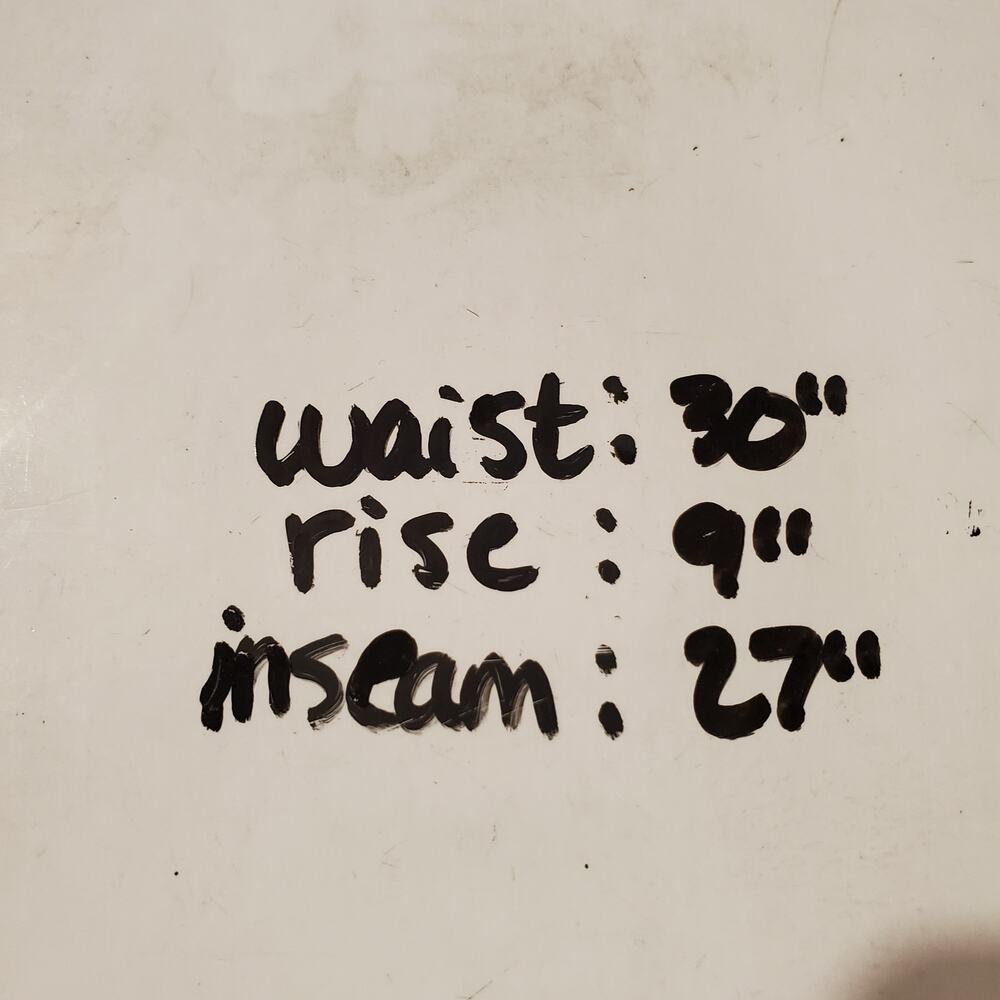 waist: 30"
rise : 9"
inseam : 27"